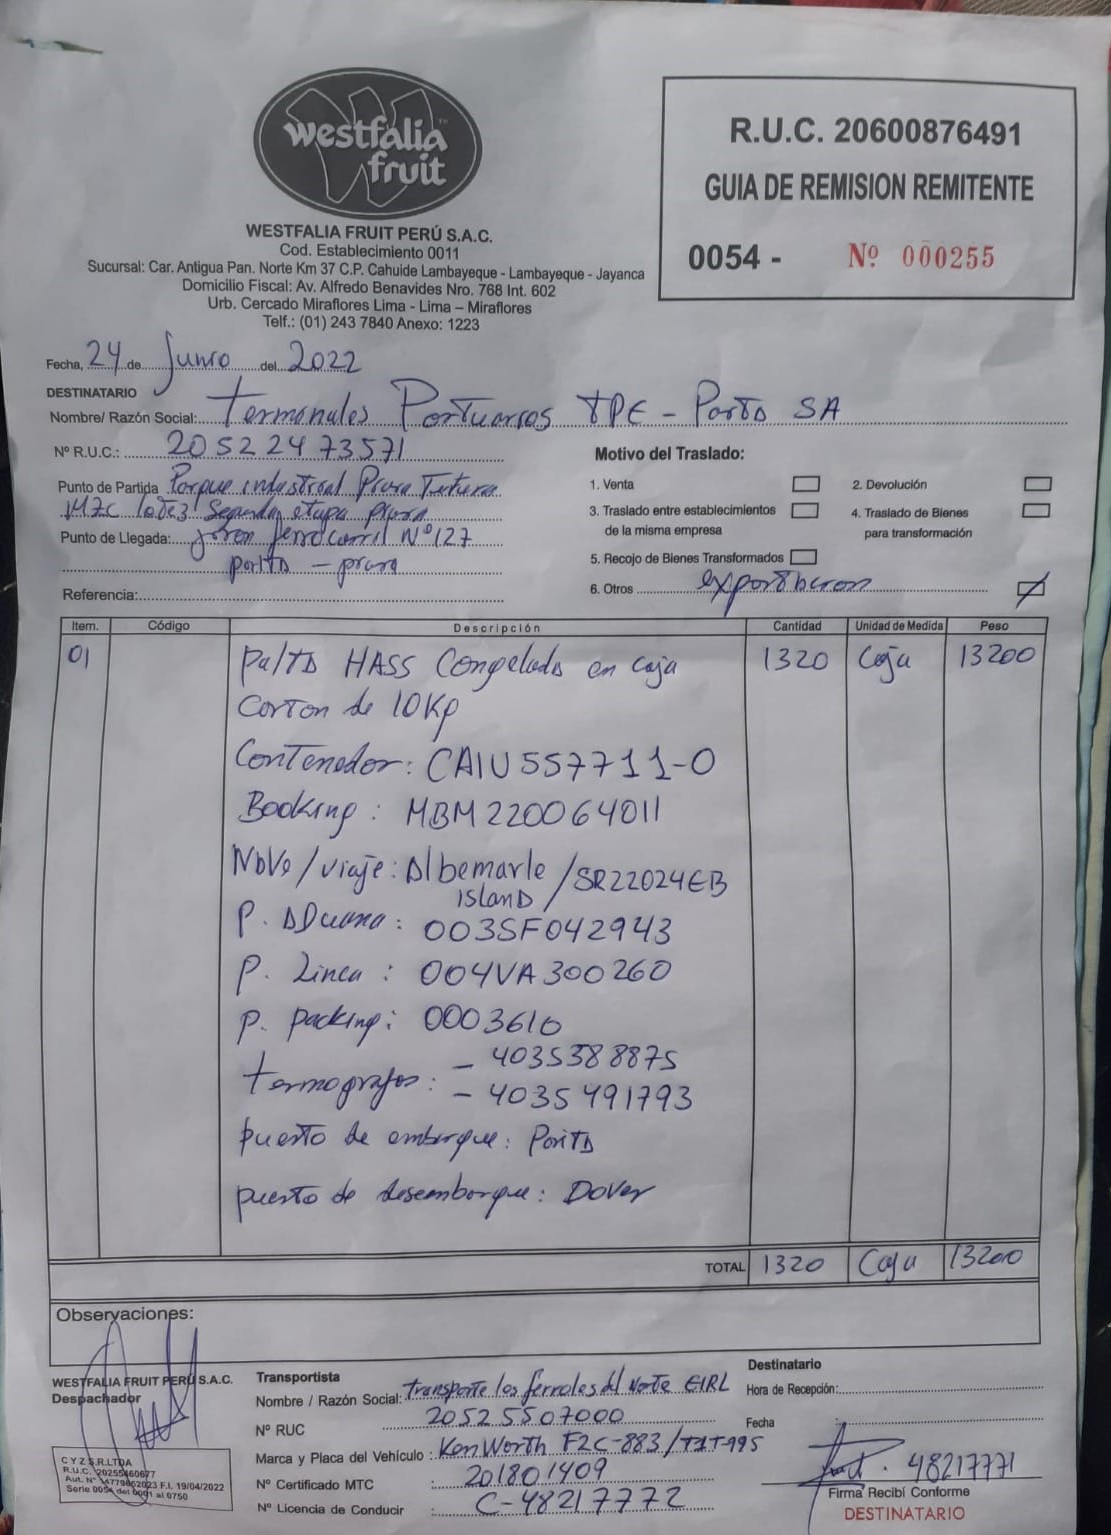 westfalia
fruit
WESTFALIA FRUIT PERÚ S.A.C.
Cod. Establecimiento 0011
Sucursal: Car. Antigua Pan. Norte Km 37 C.P. Cahuide Lambayeque - Lambayeque - Jayanca
Domicilio Fiscal: Av. Alfredo Benavides Nro. 768 Int. 602
Urb. Cercado Miraflores Lima - Lima – Miraflores
Telf.: (01) 243 7840 Anexo: 1223
R.U.C. 20600876491
GUIA DE REMISION REMITENTE
0054 - Nº 000255
Fecha, 24 de Junio del 2022
DESTINATARIO
Nombre/ Razón Social: Terminales Portuarios TPE - Paita SA
Nº R.U.C.: 20522473571
Punto de Partida Parque industrial Piura Futura
MZC lote3 Segunda etapa piura
Punto de Llegada: jiron ferrocarril Nº 127
paita - piura
Referencia:
Motivo del Traslado:
1. Venta
2. Devolución
3. Traslado entre establecimientos
de la misma empresa
4. Traslado de Bienes
para transformación
5. Recojo de Bienes Transformados
6. Otros exportacion
Item. Código Descripción Cantidad Unidad de Medida Peso
01 Palta HASS Congelada en caja 1320 Caja 13200
Carton de 10Kg
Contenedor: CAIU557711-0
Booking: MBM220064011
Nave/viaje: Albemarle / SR22024EB
island
P. Aduana: 003SF042943
P. Linea: 004VA300260
P. packing: 0003610
termografos: - 4035388875
- 4035491793
puerto de embarque: Paita
puerto de desembarque: Dover
TOTAL 1320 Caja 13200
Observaciones:
WESTFALIA FRUIT PERÚ S.A.C.
Despachador
C Y Z S.R.LTDA
R.U.C. 20255460677
Aut. N° 14779862023 F.I. 19/04/2022
Serie 0054 del 0001 al 0750
Transportista
Nombre / Razón Social: transporte los ferroles del Norte EIRL
Nº RUC 20525507000
Marca y Placa del Vehículo: KenWorth F2C-883/T1T-995
Nº Certificado MTC : 201801409
Nº Licencia de Conducir : C-48217772
Destinatario
Hora de Recepción:
Fecha :
48217771
Firma Recibí Conforme
DESTINATARIO